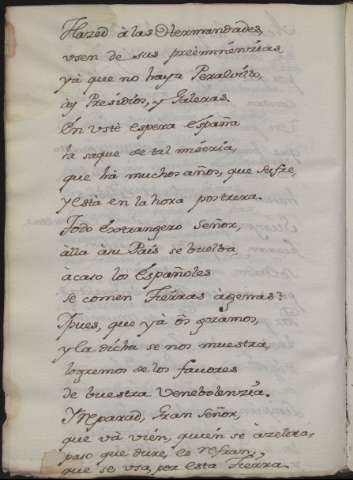 Hazed à las Hermandades,
usen de sus preèminenzias,
yà que no haya Peralvillo,
ay Presidios, y Galeras.
En usté espera España
la saque de tal miseria,
que hà muchos años, que sufre,
y està en la hora postrera.
Todo Extrangero Señor,
àlla à su País se buelba,
àcaso los Españoles
se comen Tierras àgenas?
Ypues, que yà ôs gozamos,
y la dicha se nos muestra,
logremos de los favores
de vuestra Venebolenzia.
Y Reparad, Gran Señor,
que và vien, quien se azelera,
paso que dure, es refran,
que se usa, por esta Tierra.